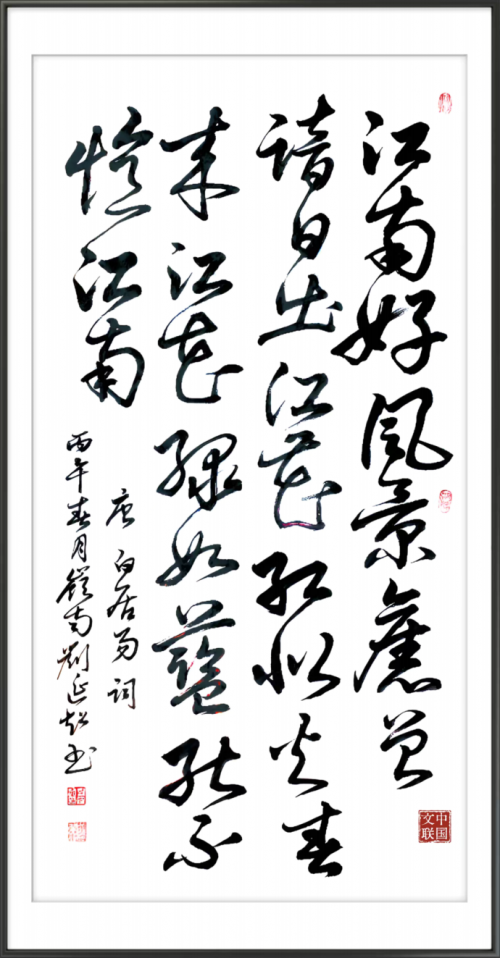 江南好風景舊曾
諳日出江花紅似火春
来江花緑如藍能不
憶江南
唐白居易詞
丙午春月嶺南劉延超书
中国文联